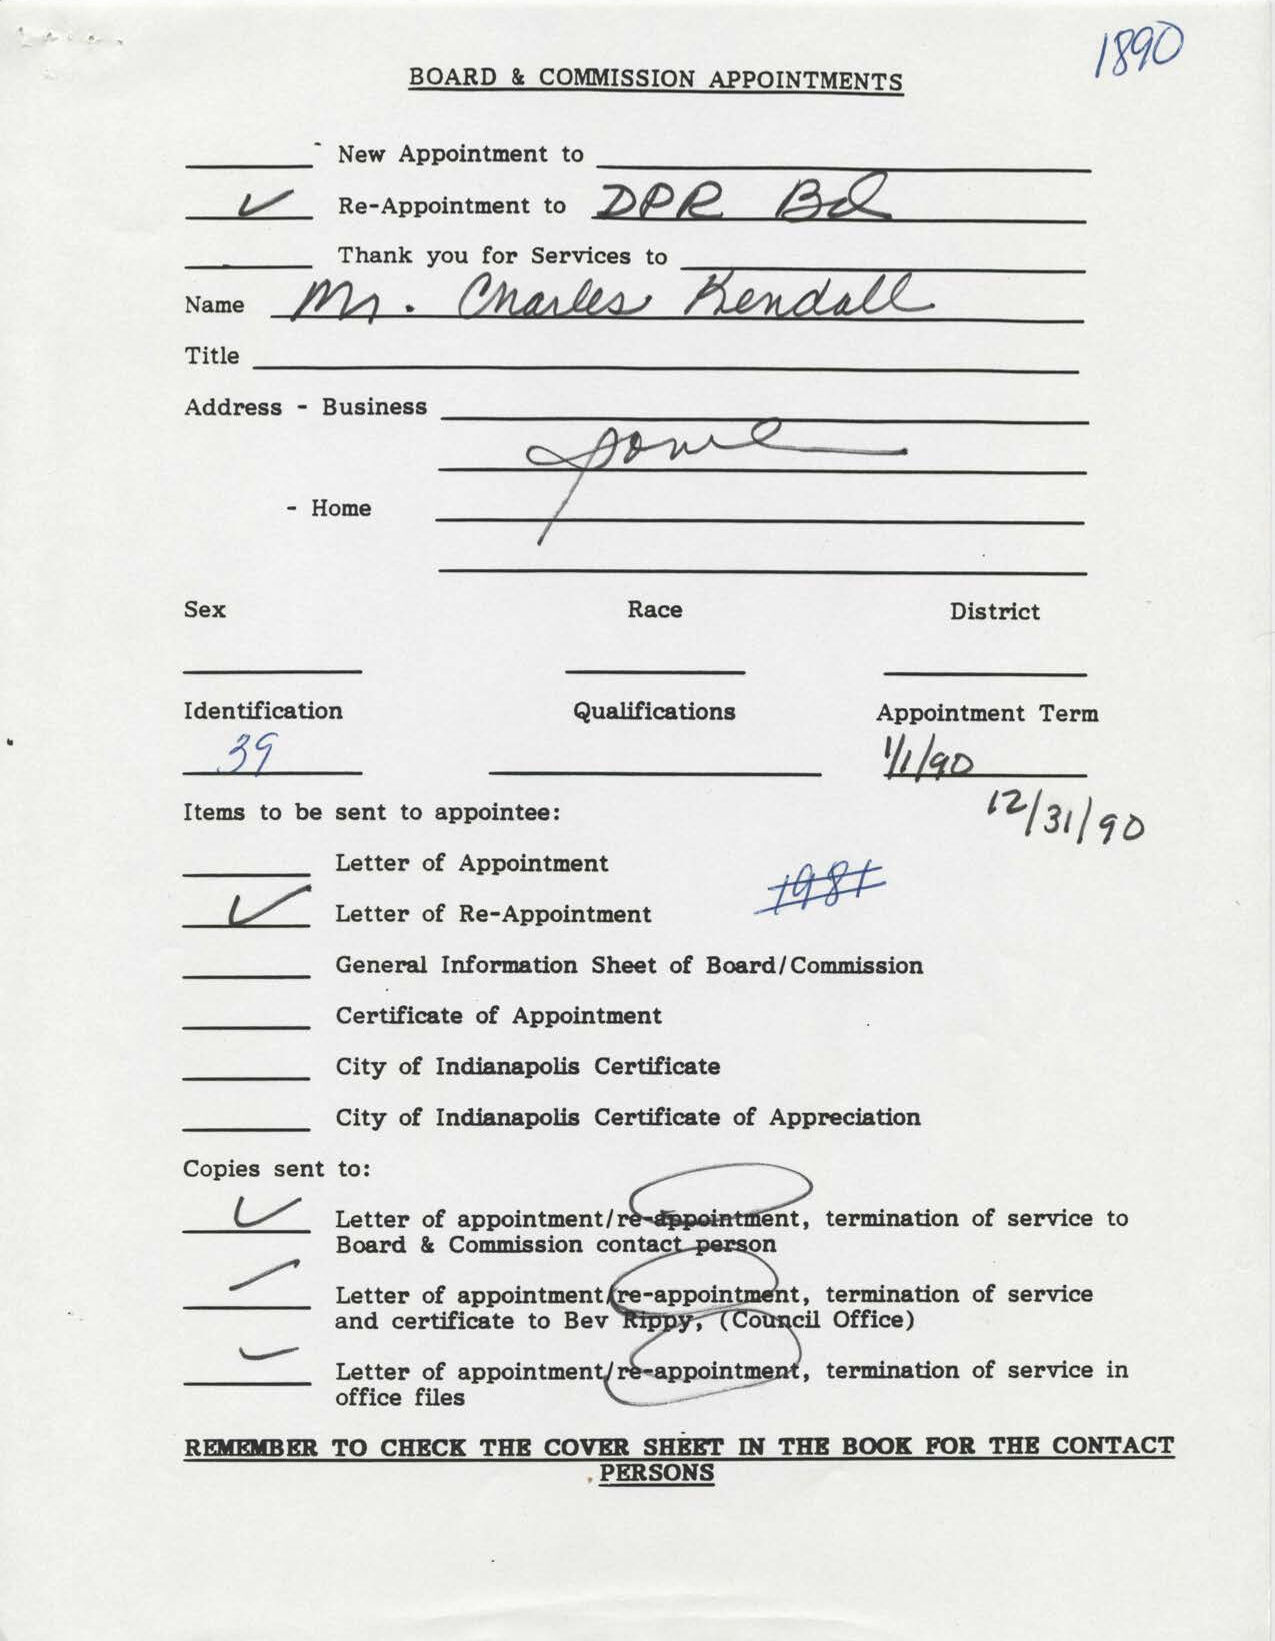 1890
BOARD & COMMISSION APPOINTMENTS
New Appointment to
Re-Appointment to DPR Bd
Thank you for Services to
Name Mr. Charles Kendall
Title
Address - Business
same
- Home
Sex Race District
Identification Qualifications Appointment Term
39 1/1/90
12/31/90
Items to be sent to appointee:
Letter of Appointment
1981
Letter of Re-Appointment
General Information Sheet of Board/Commission
Certificate of Appointment
City of Indianapolis Certificate
City of Indianapolis Certificate of Appreciation
Copies sent to:
Letter of appointment/re-appointment, termination of service to
Board & Commission contact person
Letter of appointment/re-appointment, termination of service
and certificate to Bev Rippy, (Council Office)
Letter of appointment/re-appointment, termination of service in
office files
REMEMBER TO CHECK THE COVER SHEET IN THE BOOK FOR THE CONTACT
PERSONS